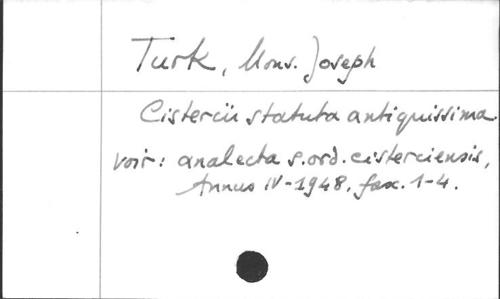 Turk, Mons. Joseph
Cistercii statuta antiquissima.
voir: analecta s. ord. cisterciensis,
Annus IV-1948, fasc. 1-4.